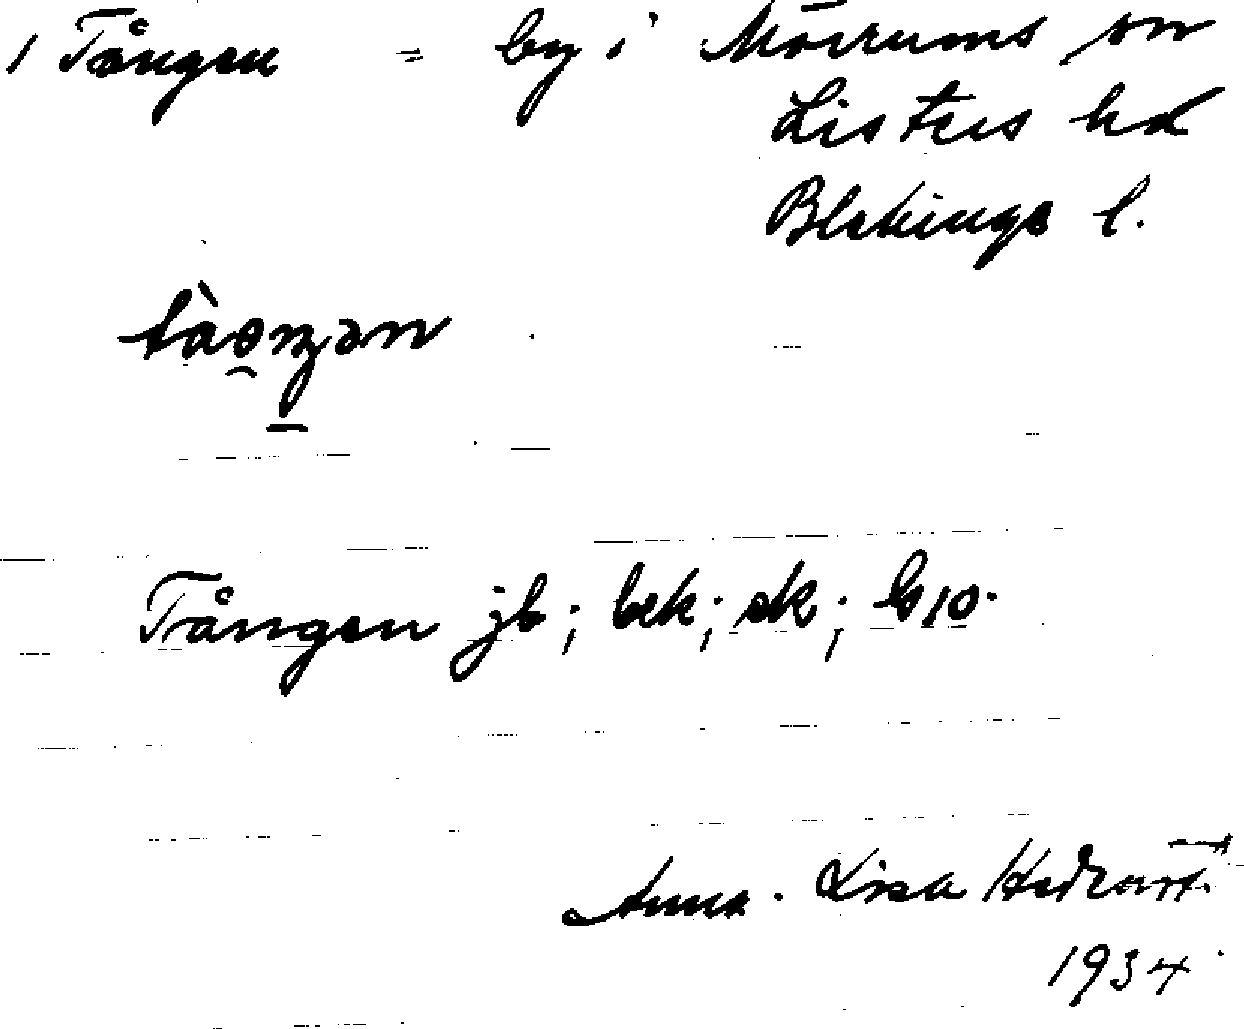 1 Tången = by i Mörrums sn
Listers hd
Blekinge l.
tàoŋən
Tången jb; bek; sk; G10
Anna-Lisa
1934